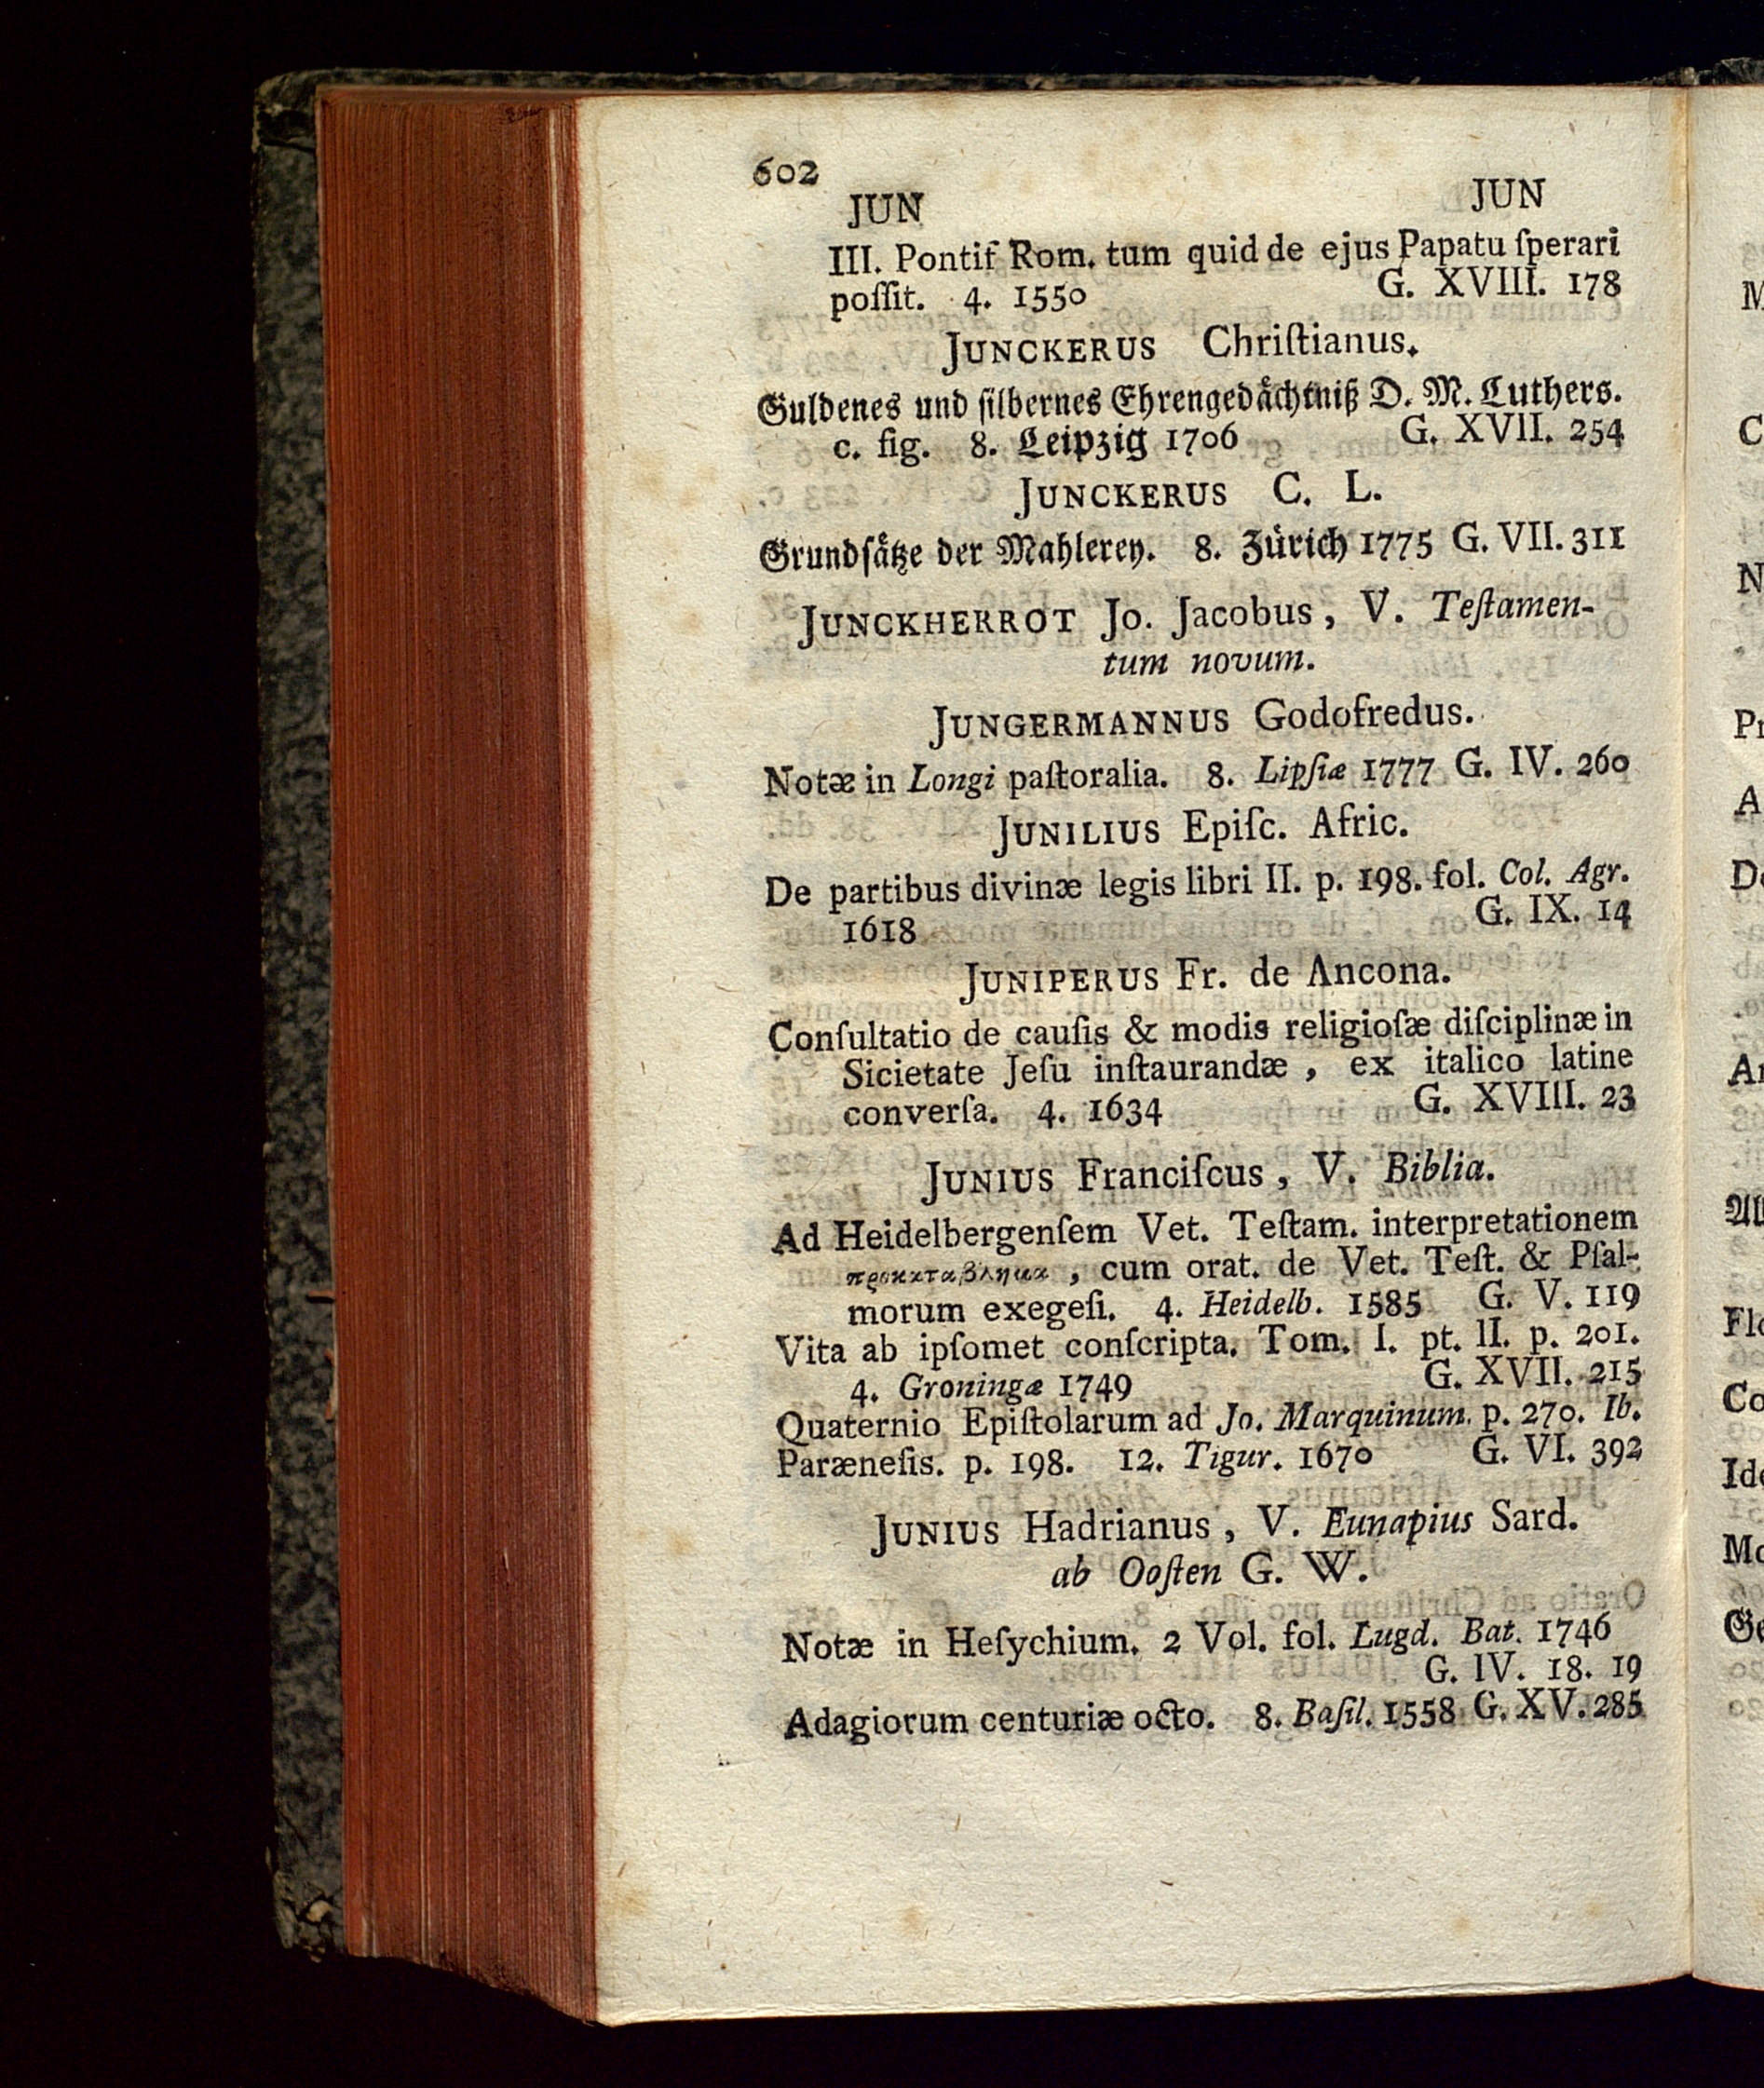 602
JUN JUN
III. Pontif Rom. tum quid de ejus Papatu ſperari
poſſit. 4. 1550 G. XVIII. 178
JUNCKERUS Chriſtianus.
Guldenes und ſilbernes Ehrengedächtniß D. M. Luthers.
c. fig. 8. Leipzig 1706 G. XVII. 254
JUNCKERUS C. L.
Grundſätze der Mahlerey. 8. Zürich 1775 G. VII. 311
JUNCKHERROT Jo. Jacobus, V. Teſtamen-
tum novum.
JUNGERMANNUS Godofredus.
Notæ in Longi paſtoralia. 8. Lipſiæ 1777 G. IV. 260
JUNILIUS Epiſc. Afric.
De partibus divinæ legis libri II. p. 198. fol. Col. Agr.
1618 G. IX. 14
JUNIPERUS Fr. de Ancona.
Conſultatio de cauſis & modis religioſæ diſciplinæ in
Sicietate Jeſu inſtaurandæ, ex italico latine
converſa. 4. 1634 G. XVIII. 23
JUNIUS Franciſcus, V. Biblia.
Ad Heidelbergenſem Vet. Teſtam. interpretationem
προκαταβλημα, cum orat. de Vet. Teſt. & Pſal-
morum exegeſi. 4. Heidelb. 1585 G. V. 119
Vita ab ipſomet conſcripta. Tom. I. pt. II. p. 201.
4. Groningæ 1749 G. XVII. 215
Quaternio Epiſtolarum ad Jo. Marquinum. p. 270. Ib.
Paræneſis. p. 198. 12. Tigur. 1670 G. VI. 392
JUNIUS Hadrianus, V. Eunapius Sard.
ab Ooſten G. W.
Notæ in Heſychium. 2 Vol. fol. Lugd. Bat. 1746
G. IV. 18. 19
Adagiorum centuriæ octo. 8. Baſil. 1558 G. XV. 285